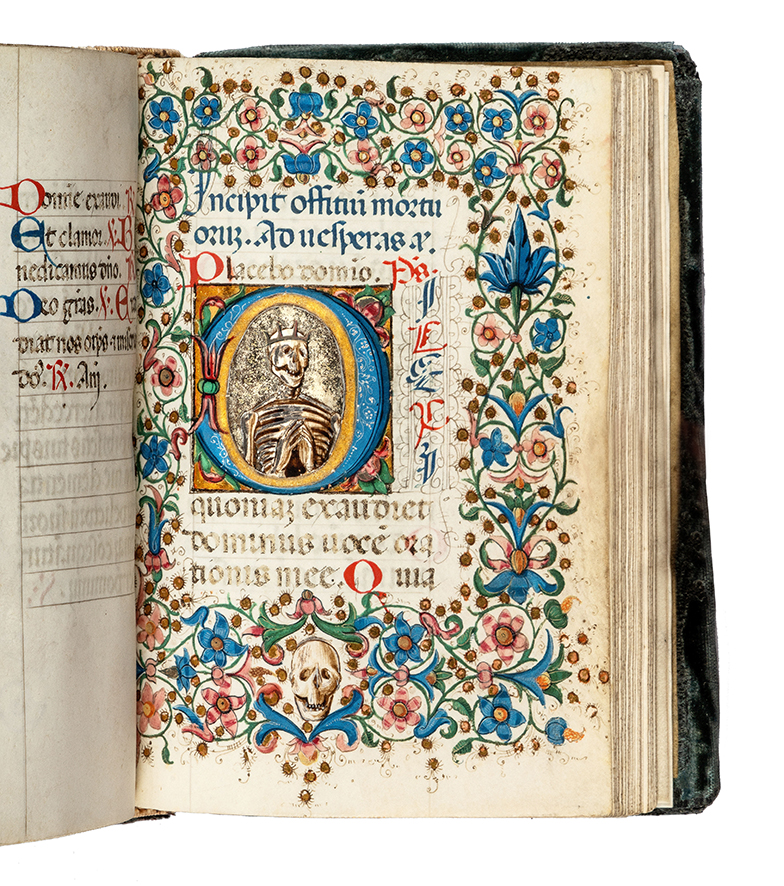 Domīe exaudi. R
Et clamor. V. B
nedicamus dño. R
Deo gr̃as. V. Exa
diat nos
Incipit offitiū mortu
oruz. Ad uesperas a.
Placebo domīo. Ps.
DILEXI
quoniaz exaudiet
dominus uocē ora
tionis mee. Quia